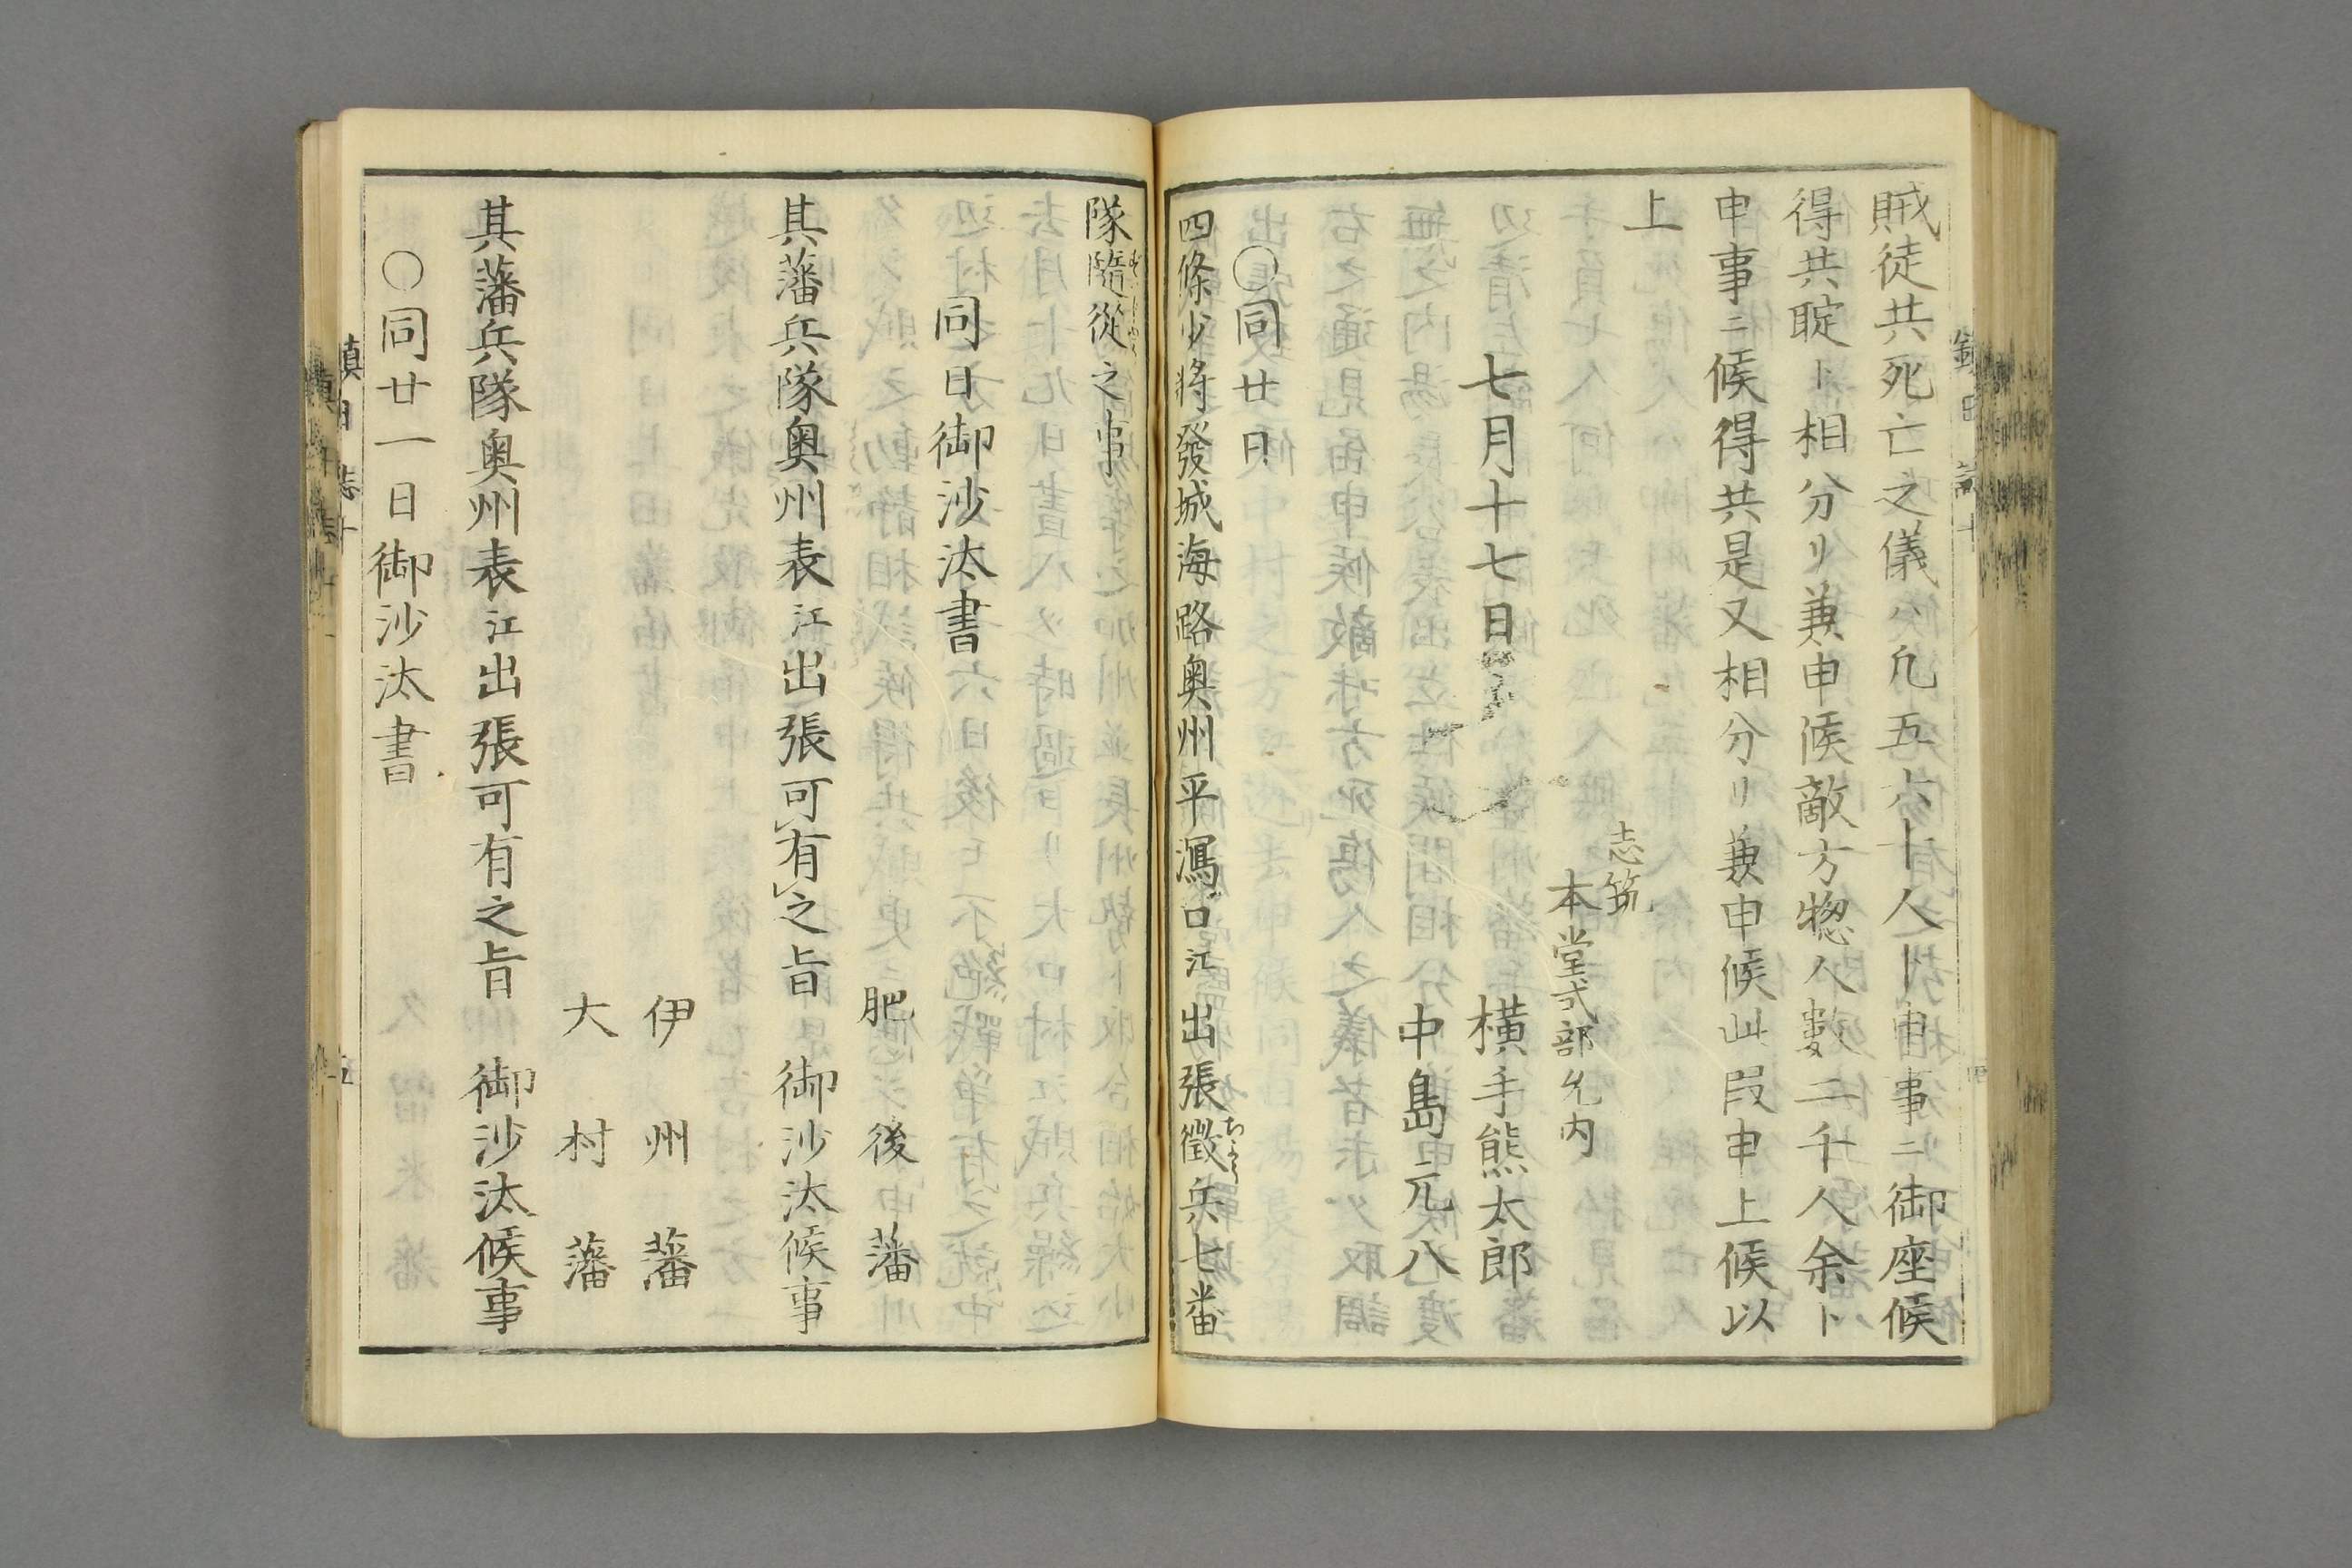 賊徒共死亡之儀ハ凡五六十人ト申事ニ御座候
得共聢ト相分リ兼申候敵方惣人數二千人余ト
申事ニ候得共是又相分リ兼申候此段申上候以
上
志筑
本堂式部允内
七月十七日
横手熊太郎
中島元八
○同廿日
四條少將發城海路奥州平潟口江出張徴兵七番
隊隨從之事
同日御沙汰書
肥後藩
其藩兵隊奥州表江出張可有之旨 御沙汰候事
伊州藩
大村藩
其藩兵隊奥州表江出張可有之旨 御沙汰候事
○同廿一日御沙汰書